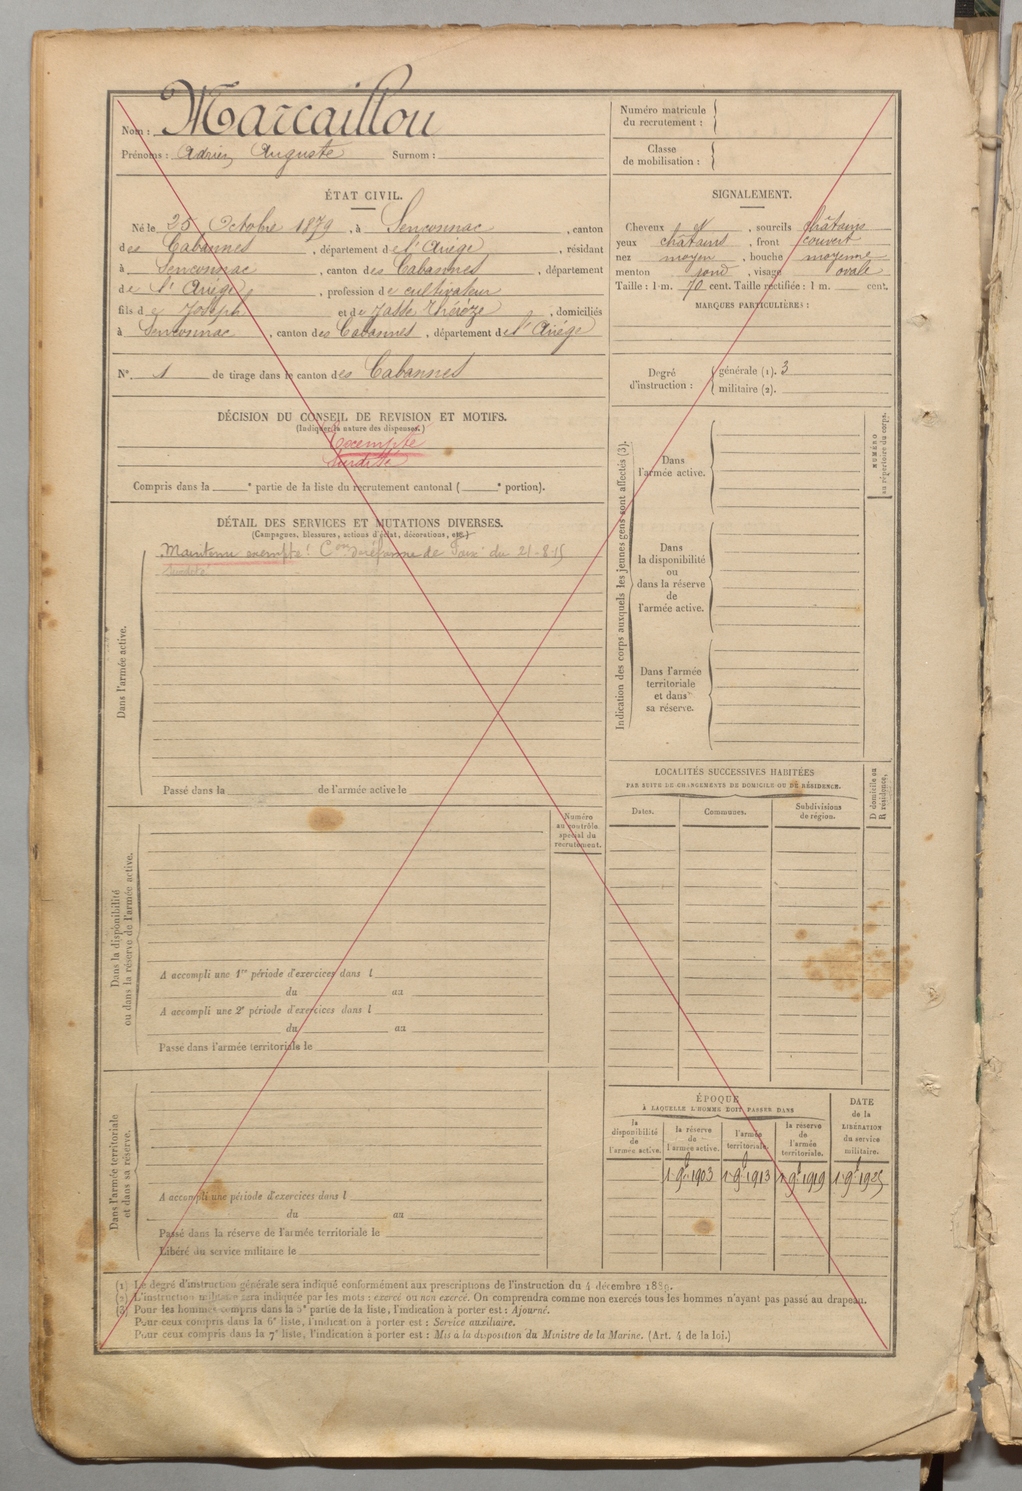 Nom : Marcaillou
Prénoms : Adrien Auguste Surnom :
Numéro matricule
du recrutement :
Classe
de mobilisation :
ÉTAT CIVIL.
Né le 25 Octobre 1879, à Senconnac, canton
des Cabannes, département de l'Ariège, résidant
à Senconnac, canton des Cabannes, département
de l'Ariège, profession de cultivateur
fils de Joseph et de Jasse Thérèze, domiciliés
à Senconnac, canton des Cabannes, département de l'Ariège
N° 1 de tirage dans le canton des Cabannes
SIGNALEMENT.
Cheveux et, sourcils châtains
yeux châtains, front couvert
nez moyen, bouche moyenne
menton rond, visage ovale
Taille : 1 m. 70 cent. Taille rectifiée : 1 m. cent.
MARQUES PARTICULIÈRES :
Degré
d'instruction :
générale (1). 3
militaire (2).
DÉCISION DU CONSEIL DE REVISION ET MOTIFS.
(Indiquer la nature des dispenses.)
Exempté
Surdité
Compris dans la e partie de la liste du recrutement cantonal ( e portion).
DÉTAIL DES SERVICES ET MUTATIONS DIVERSES.
(Campagnes, blessures, actions d'éclat, décorations, etc.)
Maintenu exempté. Con de réforme de Foix du 21-8-15
Surdité
Dans l'armée active.
Passé dans la de l'armée active le
Indication des corps auxquels les jeunes gens sont affectés (3).
Dans
l'armée active.
Dans
la disponibilité
ou
dans la réserve
de
l'armée active.
Dans l'armée
territoriale
et dans
sa réserve.
NUMÉRO
au répertoire du corps.
LOCALITÉS SUCCESSIVES HABITÉES
PAR SUITE DE CHANGEMENTS DE DOMICILE OU DE RÉSIDENCE.
Dates.
Communes.
Subdivisions
de région.
D domicile ou
R résidence.
Dans la disponibilité
ou dans la réserve de l'armée active.
Numéro
au contrôle
spécial du
recrutement.
A accompli une 1re période d'exercices dans l
du au
A accompli une 2e période d'exercices dans l
du au
Passé dans l'armée territoriale le
Dans l'armée territoriale
et dans sa réserve.
A accompli une période d'exercices dans l
du au
Passé dans la réserve de l'armée territoriale le
Libéré du service militaire le
ÉPOQUE
À LAQUELLE L'HOMME DOIT PASSER DANS
la
disponibilité
de
l'armée active.
la réserve
de
l'armée active.
l'armée
territoriale.
la réserve
de
l'armée
territoriale.
DATE
de la
LIBÉRATION
du service
militaire.
1er 9bre 1903 1er 9bre 1913 1er 9bre 1919 1er 9bre 1925
(1) Le degré d'instruction générale sera indiqué conformément aux prescriptions de l'instruction du 4 décembre 1889.
(2) L'instruction militaire sera indiquée par les mots : exercé ou non exercé. On comprendra comme non exercés tous les hommes n'ayant pas passé au drapeau.
(3) Pour les hommes compris dans la 5e partie de la liste, l'indication à porter est : Ajourné.
Pour ceux compris dans la 6e liste, l'indication à porter est : Service auxiliaire.
Pour ceux compris dans la 7e liste, l'indication à porter est : Mis à la disposition du Ministre de la Marine. (Art. 4 de la loi.)